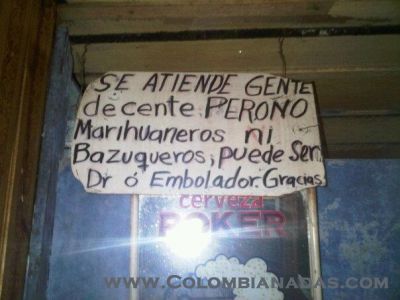 SE ATIENDE GENTE
decente. PERO NO
Marihuaneros ni
Bazuqueros, puede Ser.
Dr ó Embolador. Gracias.
cerveza
POKER
www.Colombianadas.com